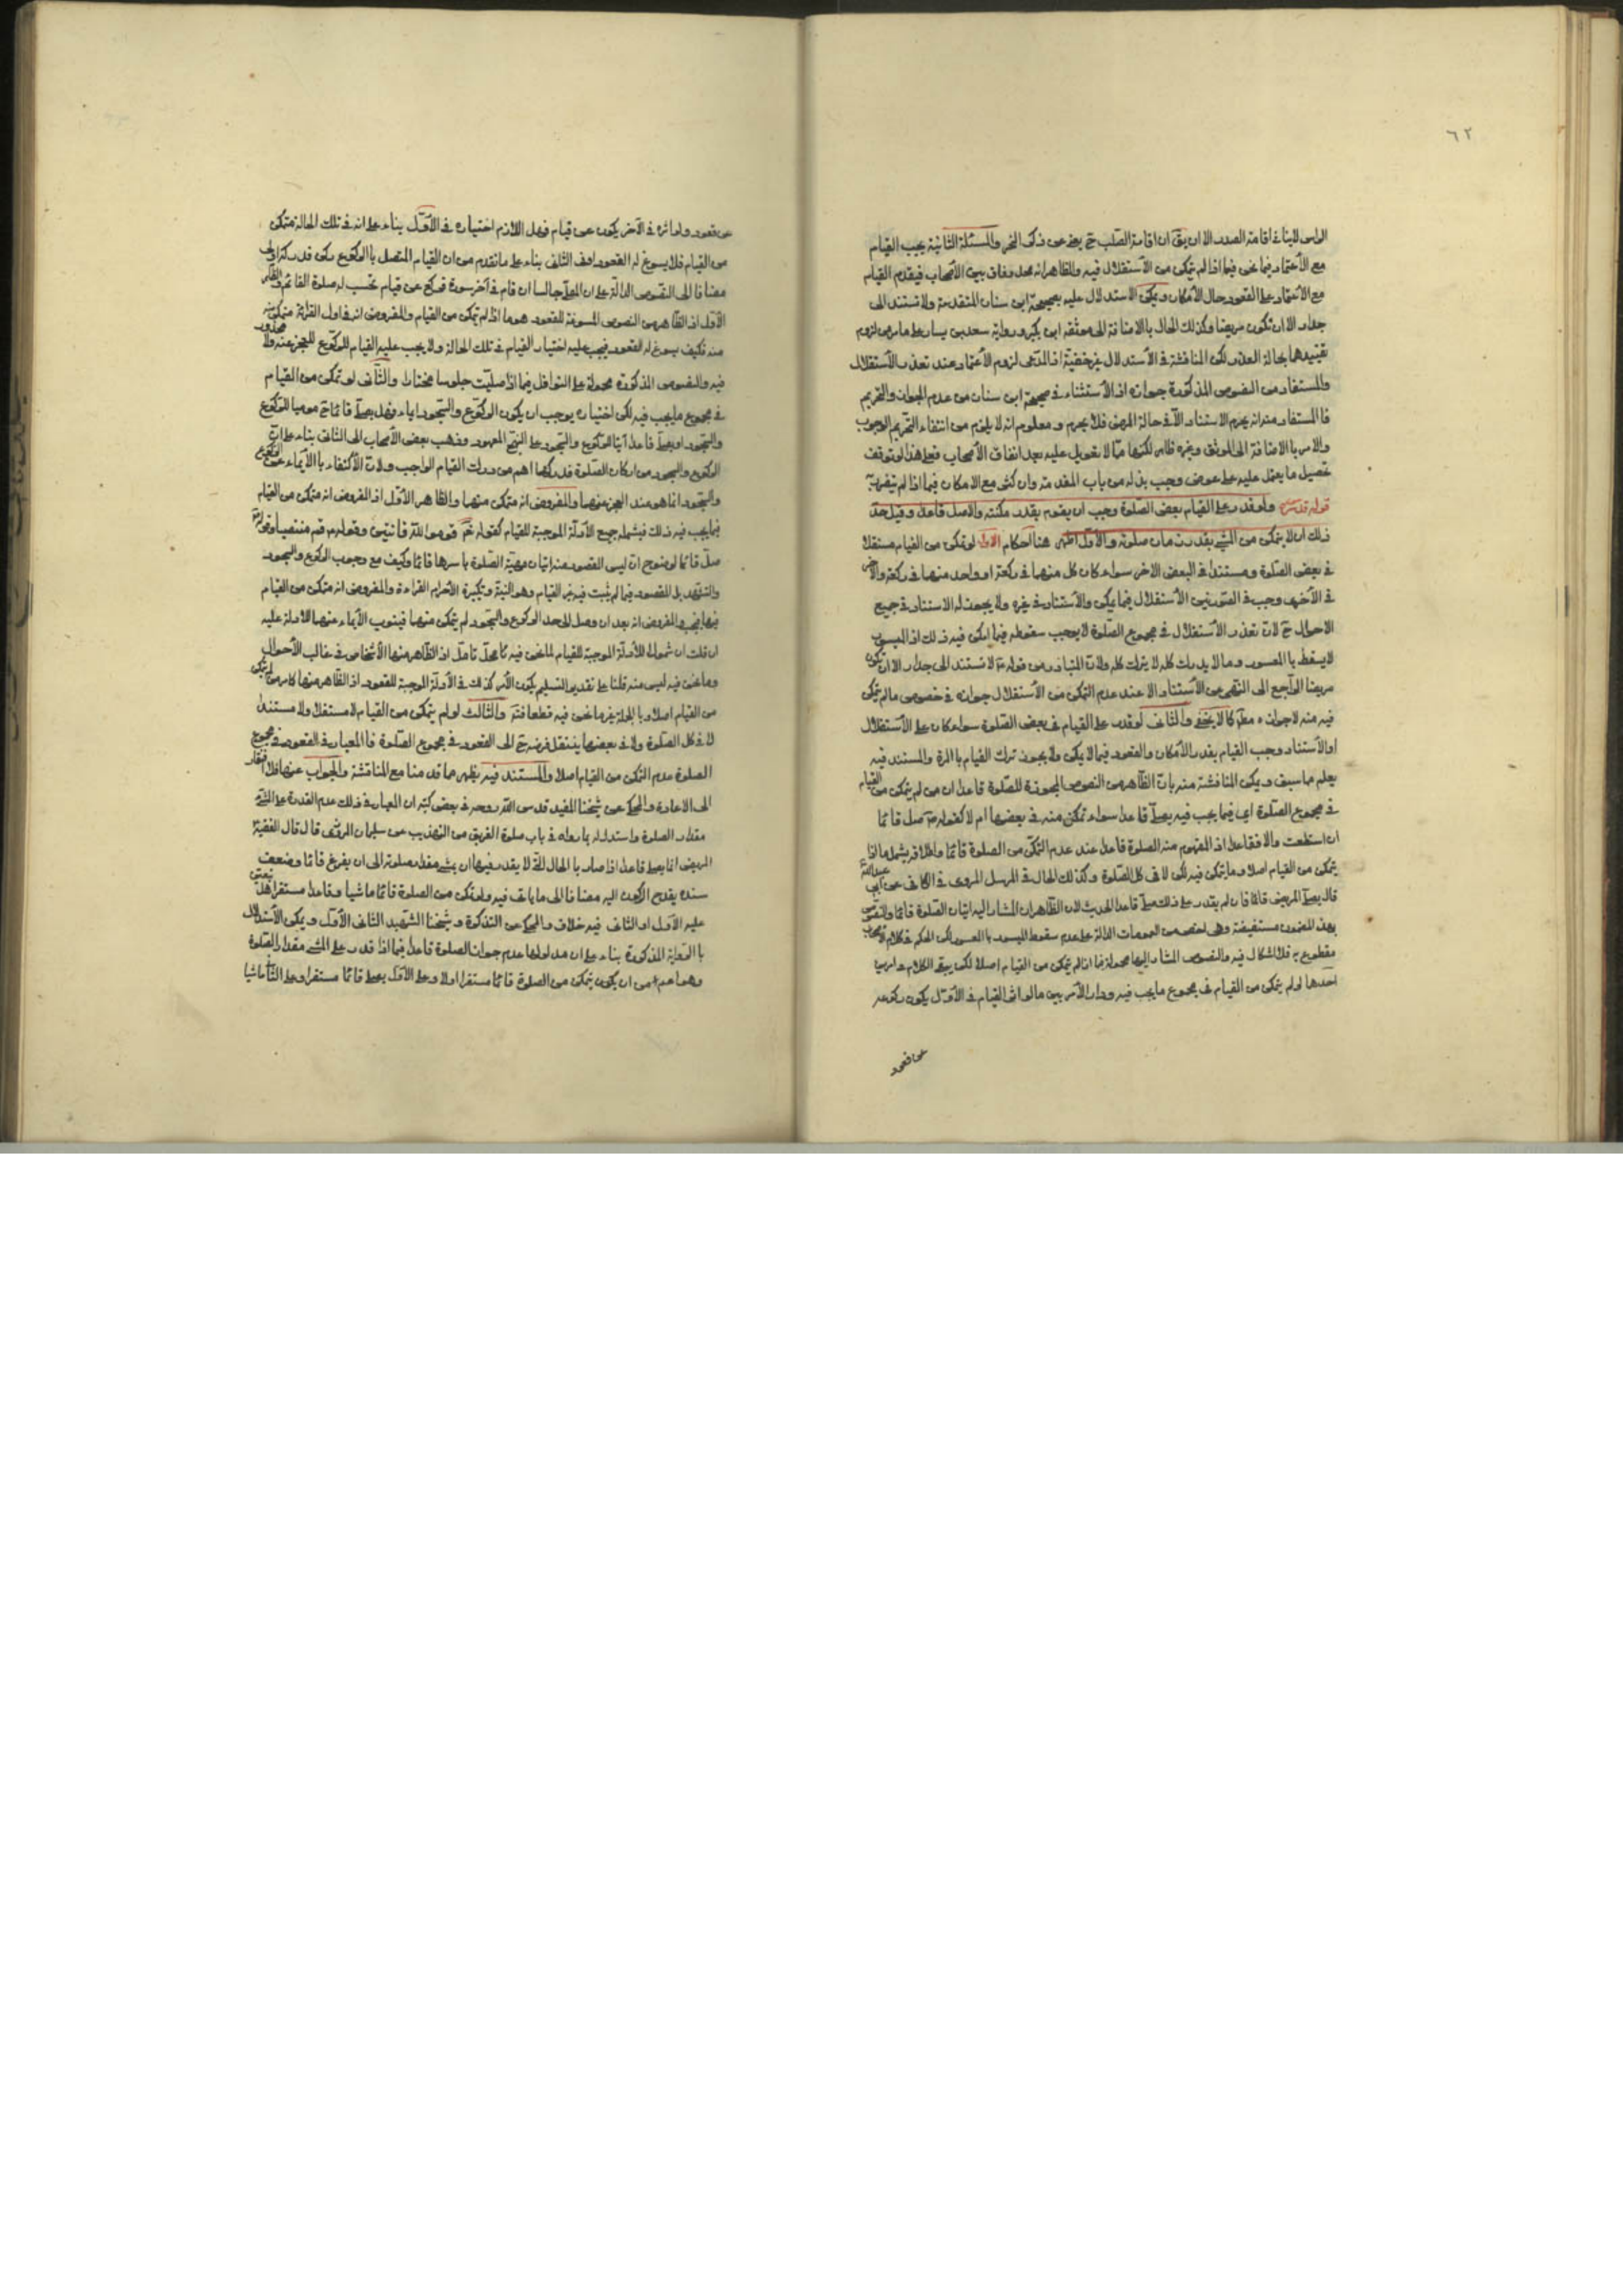 ٦٢
الراس لا ينافى اقامة الصدر الا ان يقق ان اقامة الصلب ح يغنى عن ذكر النحر والمسئلة الثانية يجب القيام
مع الأعتماد فيما نحن فيما اذا لم يتمكن من الأستقلال فيه والظاهر انه محل وفاق بين الأصحاب فيقدم القيام
مع الأعتماد على القعود حال الأمكان ويمكن الاستدلال عليه بصحيحة ابن سنان المتقدمة ولا تستند الى
جدار الا ان تكون مريضا وكذلك الحال بالاضافة الى موثقه ابن بكير ورواية سعد بن يسار على ما مر من لزوم
تقييدها بحالة العذر لكن المناقشة فى الأستدلال غير خفيّة اذ المدعى لزوم الأعتماد عند تعذر الأستقلال
والمستفاد من النصوص المذكورة جوازه اذ الأستثناء فى صحيحة ابن سنان من عدم الجواز والتحريم
فالمستفاد منه انه يحرم الاستناد الا فى حالة المرض فلا يحرم و معلوم انه لا يلزم من انتفاء التحريم الوجوب
والامر بالاضافة الى الموثق وغيره ظاهر لكنها ممّا لا تعويل عليه بعد اتفاق الأصحاب فعلى هذا لو توقف
تحصيل ما يعتمل عليه على عوض وجب بذله من باب المقدمة وان كثر مع الامكان فيما اذا لم يتضرر به
قوله قدس سره ولو قدر على القيام بعض الصلوة وجب ان يقوم بقدر مكنته والاصل قاعدا وقيل حد
ذلك ان لا يتمكن من المشى بقدر زمان صلوته والأول اظهر هنا احكام الاول لو تمكن من القيام مستقلا
فى بعض الصلوة ومستندا فى البعض الاخر سواء كان كل منهما فى ركعة او واحد منهما فى ركعة والاخر
فى الأخرى وجب فى الصورتين الأستقلال فيما يمكن والأستناد فى غيره ولا يجوز له الاستناد فى جميع
الاحوال ح لان تعذر الأستقلال فى مجموع الصلوة لا يوجب سقوطه فيما امكن فيه ذلك اذ الميسور
لا يسقط بالمعسور وما لا يدرك كله لا يترك كله ولان المتبادر من قوله ع لا تستند الى جدار الا ان تكون
مريضا الراجع الى النهى عن الأستناد الا عند عدم التمكن من الأستقلال جوازه فى خصوص ما لم يتمكن
فيه منه لا جوازه مطلقا كما لا يخفى والثانى لو قدر على القيام فى بعض الصلوة سواء كان على الأستقلال
او الأستناد وجب القيام بقدر الأمكان والقعود فيما لا يمكن ولا يجوز ترك القيام بالمرة والمستند فيه
يعلم مما سبق ويمكن المناقشة منه بان الظاهر من النصوص المجوزة للصلوة قاعدا ان من لم يتمكن من القيام
فى مجموع الصلوة اى فيما يجب فيه يصلّى قاعدا سواء تمكن منه فى بعضها ام لا كقوله ع صل قائما
ان استطعت والا فقاعدا اذ المفهوم منه الصلوة قاعدا عند عدم التمكن من الصلوة قائما واطلاقه يشمل ما اذا
يتمكن من القيام اصلا وما يتمكن فيه لكن لا فى كل الصلوة وكذلك الحال فى المرسل المروى فى الكافى عن ابى عبدالله
قال يصلى المريض قائما فان لم يقدر على ذلك صلّى قاعدا الحديث لان الظاهر ان المشار اليه اتيان الصلوة قائما والنصوص
بهذا المضمون مستفيضة وهى اخص من العمومات الدالة على عدم سقوط الميسور بالمعسور لكن الحكم فى كلام الاصحاب
مقطوع به فلا اشكال فيه والنصوص المشار اليها محمولة بما اذا لم يتمكن من القيام اصلا لكن يبقى الكلام فى امرين
احدهما لو لم يتمكن من القيام فى مجموع ما يجب فيه ودار الأمر بين ما لو اثر القيام فى الأول يكون ركوعه
عن قعود
عن قعود ولو اثره فى الآخر يكون عن قيام فهل اللازم اختياره فى الأول بناء على انه فى تلك الحالة متمكن
من القيام فلا يسوغ له القعود او فى الثانى بناء على ما تقدم من ان القيام المتصل بالركوع ركن قد ركنا
مضافا الى النصوص الدالة على ان المصلى جالسا ان قام فى آخر سورة فركع عن قيام تحسب له صلوة القائم والظاهر
الأول اذ الظاهر من النصوص المسوغة للقعود هو ما اذا لم يتمكن من القيام والمفروض انه فى اول القرائة متمكن
منه فكيف يسوغ له القعود فيجب عليه اختيار القيام فى تلك الحالة ولا يجب عليه القيام للركوع للعجز عنه ولا محذور
فيه والنصوص المذكورة محمولة على النوافل فيما اذا صليت جلوسا مختارا والثانى لو تمكن من القيام
فى مجموع ما يجب فيه لكن اختياره يوجب ان يكون الركوع والسجود ايماء فهل يصلّى قائما ح موميا للركوع
والسجود او يصلى قاعدا آتيا للركوع والسجود على النهج المعهود وذهب بعض الأصحاب الى الثانى بناء على ان
الركوع والسجود من اركان الصلوة فدركهما اهم من درك القيام الواجب ولان الأكتفاء بالأيماء عن الركوع
والسجود انما هو عند العجز عنهما والمفروض انه متمكن منهما والظاهر الأول اذ المفروض انه متمكن من القيام
فيما يجب فيه ذلك فيشمله جميع الأدلة الموجبة للقيام كقوله تعم قوموا لله قانتين وقوله ع قم منتصبا وقوله
صل قائما لوضوح ان ليس المقصود منه اتيان مهيّة الصلوة باسرها قائما وكيف مع وجوب الركوع والسجود
والتشهد بل المقصود فيما لم يثبت فيه غير القيام وهو النية وتكبيرة الأحرام القراءة والمفروض انه متمكن من القيام
فيها فيجب والمفروض انه بعد ان وصل الى حد الركوع والسجود لم يتمكن منهما فينوب الأيماء عنهما للادلة عليه
ان قلت ان شمول الأدلة الموجبة للقيام لما نحن فيه كا محل تامل اذ الظاهر منها الأشخاص فى غالب الأحوال
وما نحن فيه ليس منه قلنا على تقدير التسليم يكون الأمر كذلك فى الأدلة الموجبة للقعود اذ الظاهر منها كا مر من لم يتمكن
من القيام اصلا وبالجملة غير ما نحن فيه قطعا فتم والثالث لو لم يتمكن من القيام لا مستقلا ولا مستندا
لا فى كل الصلوة ولا فى بعضها ينتقل فرضه ح الى القعود فى مجموع الصلوة فالمعيار فى القعود فى مجموع
الصلوة عدم التمكن من القيام اصلا والمستند فيه يظهر مما قدمنا مع المناقشة والجواب عنها فلا افتقار
الى الاعادة والمحكى عن شيخنا المفيد قدس الله روحه فى بعض كتبه ان المعيار فى ذلك عدم القدرة على المشى
مقدار الصلوة واستدل له بما رواه فى باب صلوة الغريق من التهذيب عن سليمان المروزى قال قال الفقيه
المريض انما يصلى قاعدا اذا صار بالحال التى لا يقدر فيها ان يمشى مقدار صلوته الى ان يفرغ قائما وضعف
سنده يقدح الركون اليه مضافا الى ما ياتى فيه ولو تمكن من الصلوة قائما ماشيا وقاعدا مستقرا فهل يتعين
عليه الأول او الثانى فيه خلاف والمحكى عن التذكرة وشيخنا الشهيد الثانى الأول ويمكن الأستدلال
بالرواية المذكورة بناء على ان مدلولها عدم جواز الصلوة قاعدا فيما اذا قدر على المشى مقدار الصلوة
وهو اعم من ان يكون يتمكن من الصلوة قائما مستقرا اولا وعلى الأول يصلى قائما مستقرا وعلى الثانى ماشيا